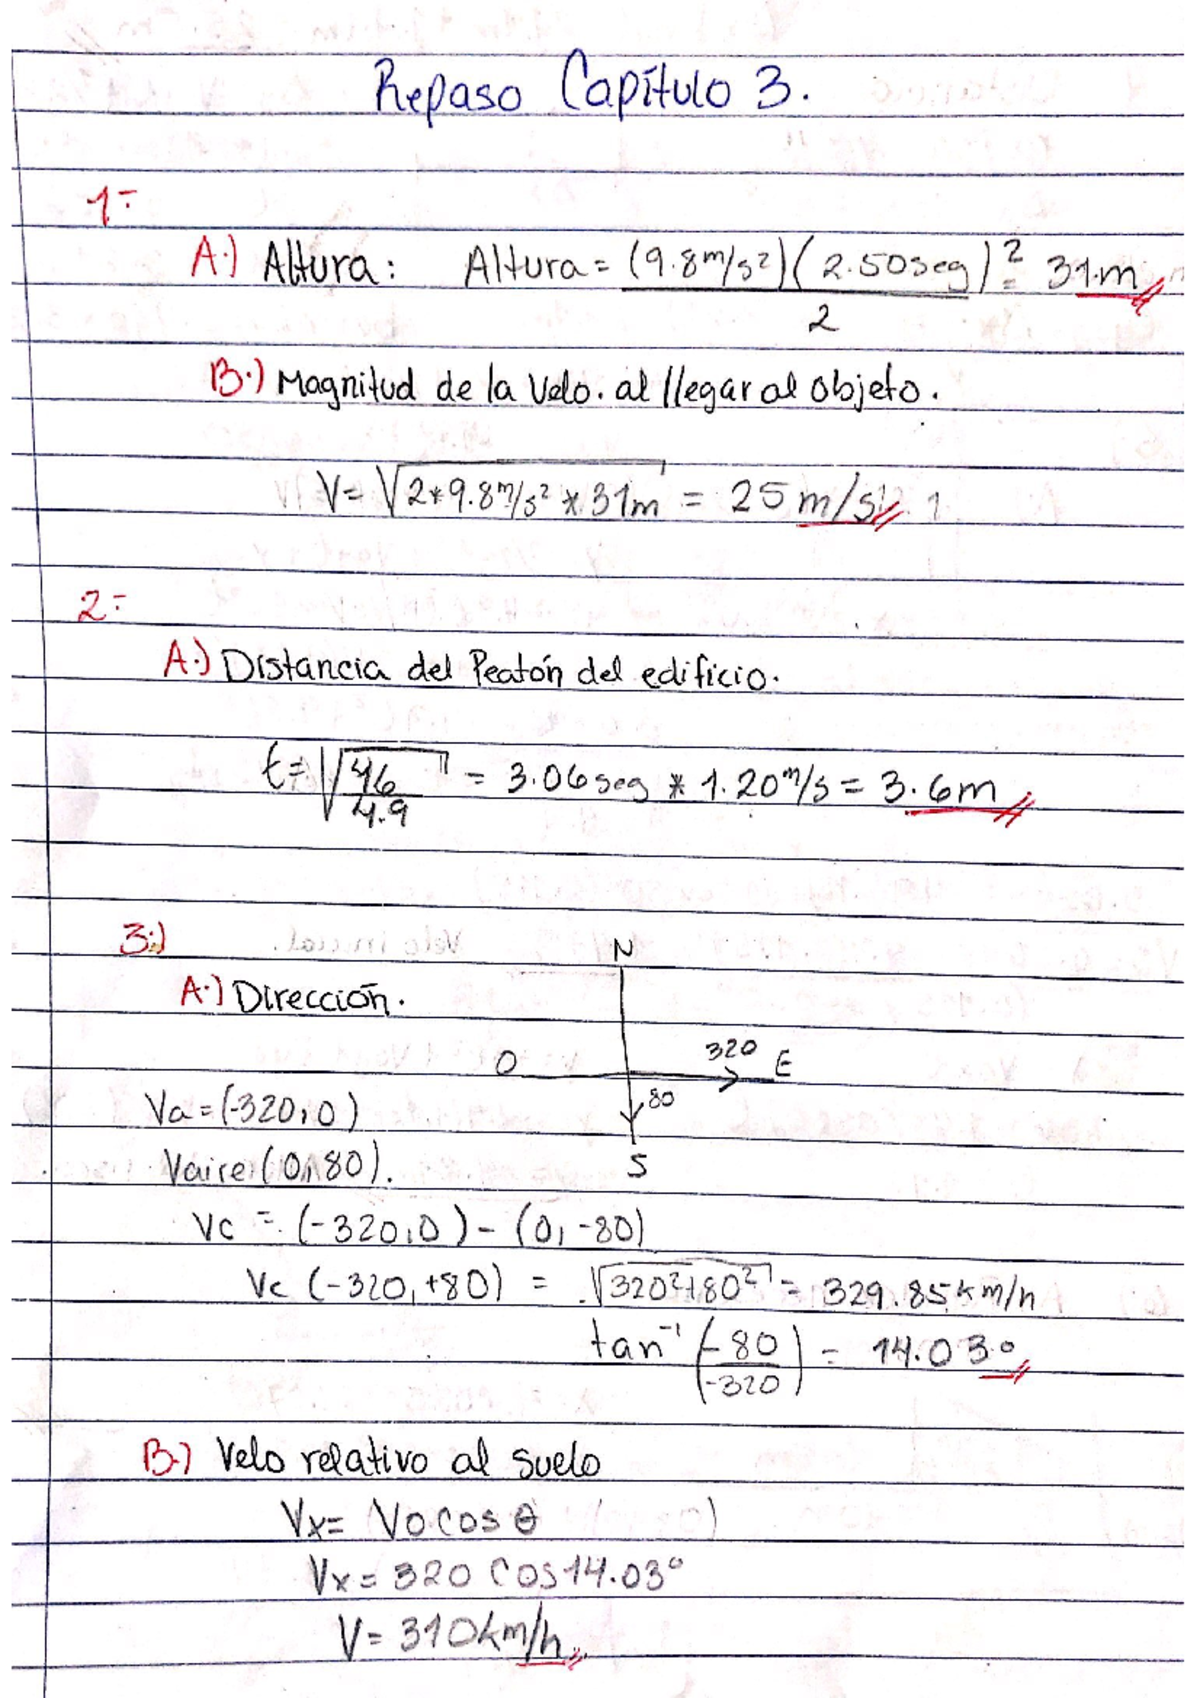 Repaso Capítulo 3.
1-
A.) Altura: Altura = (9.8 m/s²)(2.50 seg)² = 31.m
2
B.) Magnitud de la Velo. al llegar al objeto.
V = √2*9.8 m/s² * 31m = 25 m/s
2-
A.) Distancia del Peatón del edificio.
t = √46/4.9 = 3.06 seg * 1.20 m/s = 3.6m
3.)
N
A.) Dirección.
O 320 E
80
Va = (-320,0)
S
Vaire (0,80).
Vc = (-320,0) - (0, -80)
Vc (-320, +80) = √320²+80² = 329.85 km/h
tan⁻¹ (-80/-320) = 14.03°
B.) Velo relativo al suelo
Vx = Vo cos θ
Vx = 320 Cos 14.03°
V = 310 km/h